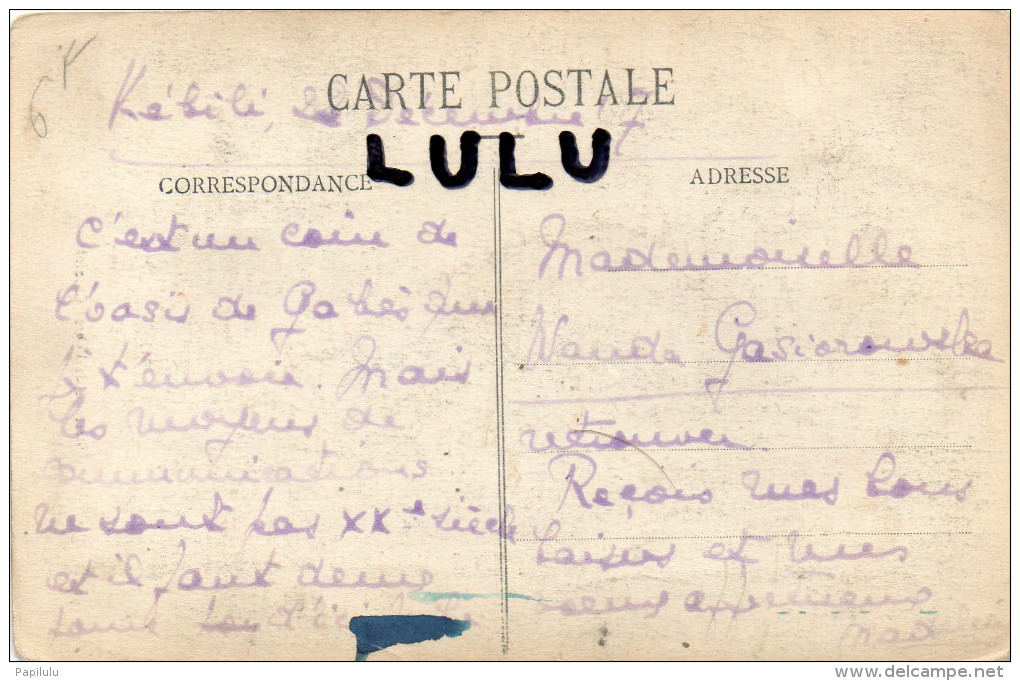 CARTE POSTALE
Kébili, 22 Décembre 7
LULU
CORRESPONDANCE
c'est un coin de
l'oasis de Gabès que
je t'envoie. Mais
les moyens de
communications
ne sont pas XXe siècle
et il faut deux
jours
ADRESSE
Mademoiselle
Wanda Gasiorowska
retrouver
Reçois mes bons
baisers et mes
voeux affectueux
Papilulu
www.delcampe.net